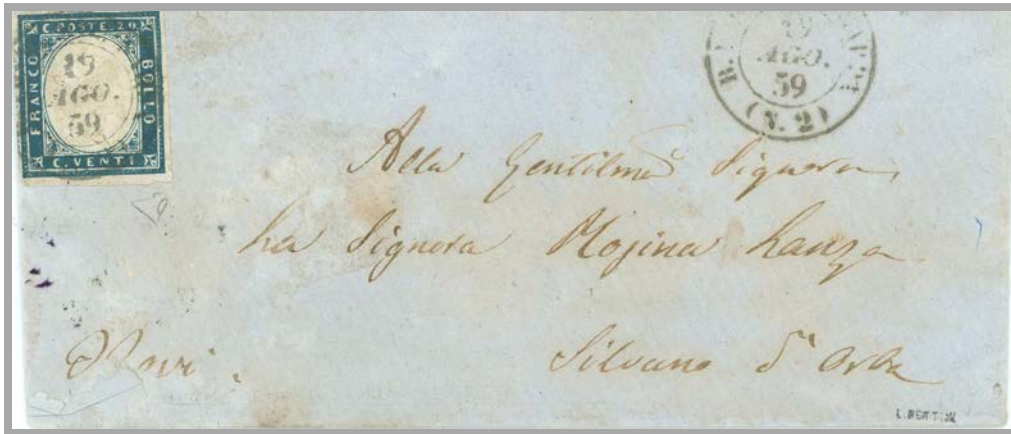 C. POSTE. 20
FRANCO
BOLLO
C. VENTI
19
AGO.
59
19
AGO.
59
(N. 2)
Alla Gentilma Signora,
La Signora Rosina Lanza
Novi.
Silvano d'Orba